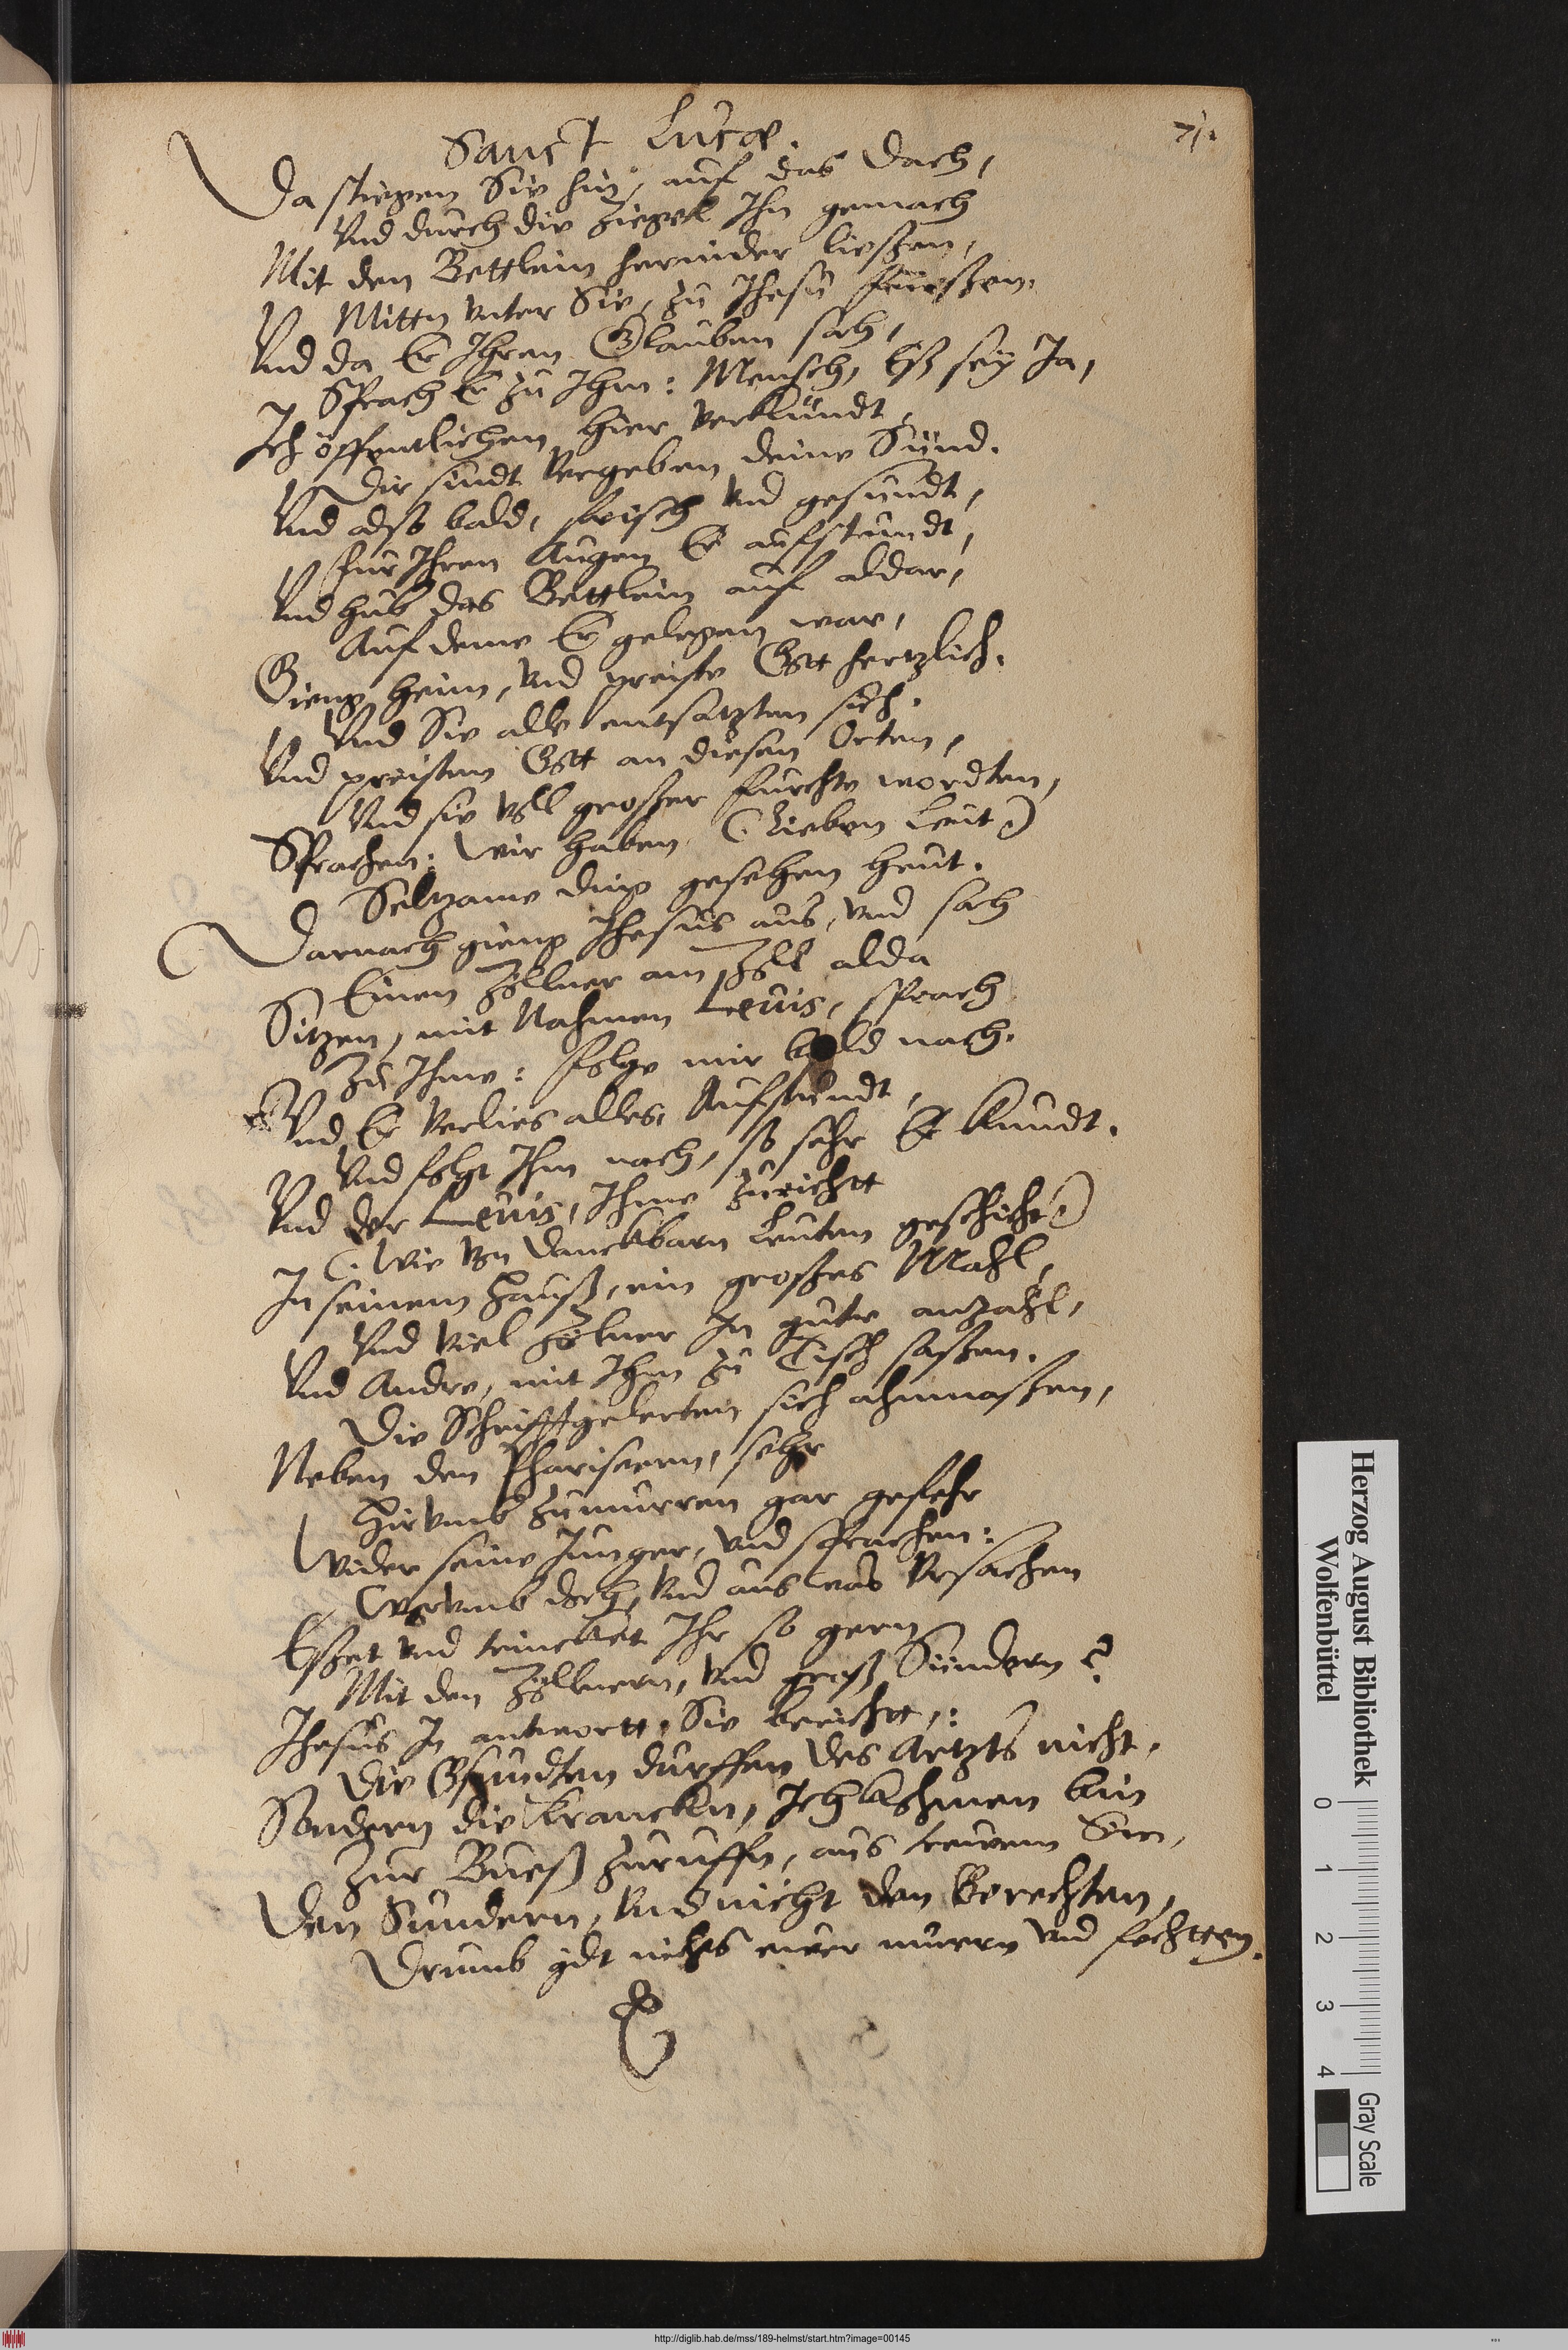 Sanct Lucæ.
71.
Da stiegen Sie hin, auf das Dach,
Vnd durch die Ziegel Ihn gemach
Mit den Bettlein herunder ließen,
Mittn vnter Sie, zu Jhesu
Vnd da Er Ihren Glauben sach,
Sprach Er zu Ihm: Mensch, Eß sey Ja,
Ich öffentlichen hier verkundt,
Dir sindt Vergeben deine Sünd.
Vnd alß bald, frisch vnd gesundt,
Fur Ihren Augen Er aufstundt,
Vnd hub das Bettlein auf aldar,
Auf deme Er gelegen war,
Gieng heim, vnd preiste Gott hertzlich.
Vnd Sie alle entsatzten sich.
Vnd preisten Gott an diesen Orten,
Vnd sie voll großer furchte wordten,
Sprachen: Wir haben (Lieben Leut)
Seltzame ding gesehen heut.
Darnach gieng Jhesus aus, vnd sach
Einen Zöllner am Zoll alda
Sitzen, mit Nahmen Levis, sprach
Zu Ihme: folge mir bald nach.
Vnd Er verlies alles, Aufstundt,
Vnd folgt Ihm nach, so sehr Er kundt.
Vnd der Levis, Ihme zuricht
(Wie von danckbarn Leuten geschicht)
In seinem Hauß, ein großes Mahl,
Vnd viel Zölner In guter anzahl,
Vnd Andre, mit Ihm zu Tisch saßen.
Die Schrifftgelerten sich ahnmaßen,
Neben den Phariseern, sehr
Hirvmb zumurren gar gefehr
Wider seine Junger, vnd sprachen:
Worvmb doch, vnd aus was Vrsachen
Eßet vnd trincket Ihr so gern
Mit den Zöllnern, vnd groß Sündern?
Jhesus In antwortt, Sie bericht,:
Die Gsundten durffen des Artzts nicht,
Sondern die Krancken, Ich kohmen bin
Zur Bueß zuruffn, aus treuem Sin,
Den Sundern, Vnd nicht den Gerechten,
Drumb gilt nichts euer murrn vnd fechtten.
Herzog August Bibliothek
Wolfenbüttel
0 1 2 3 4
Gray Scale
http://diglib.hab.de/mss/189-helmst/start.htm?image=00145